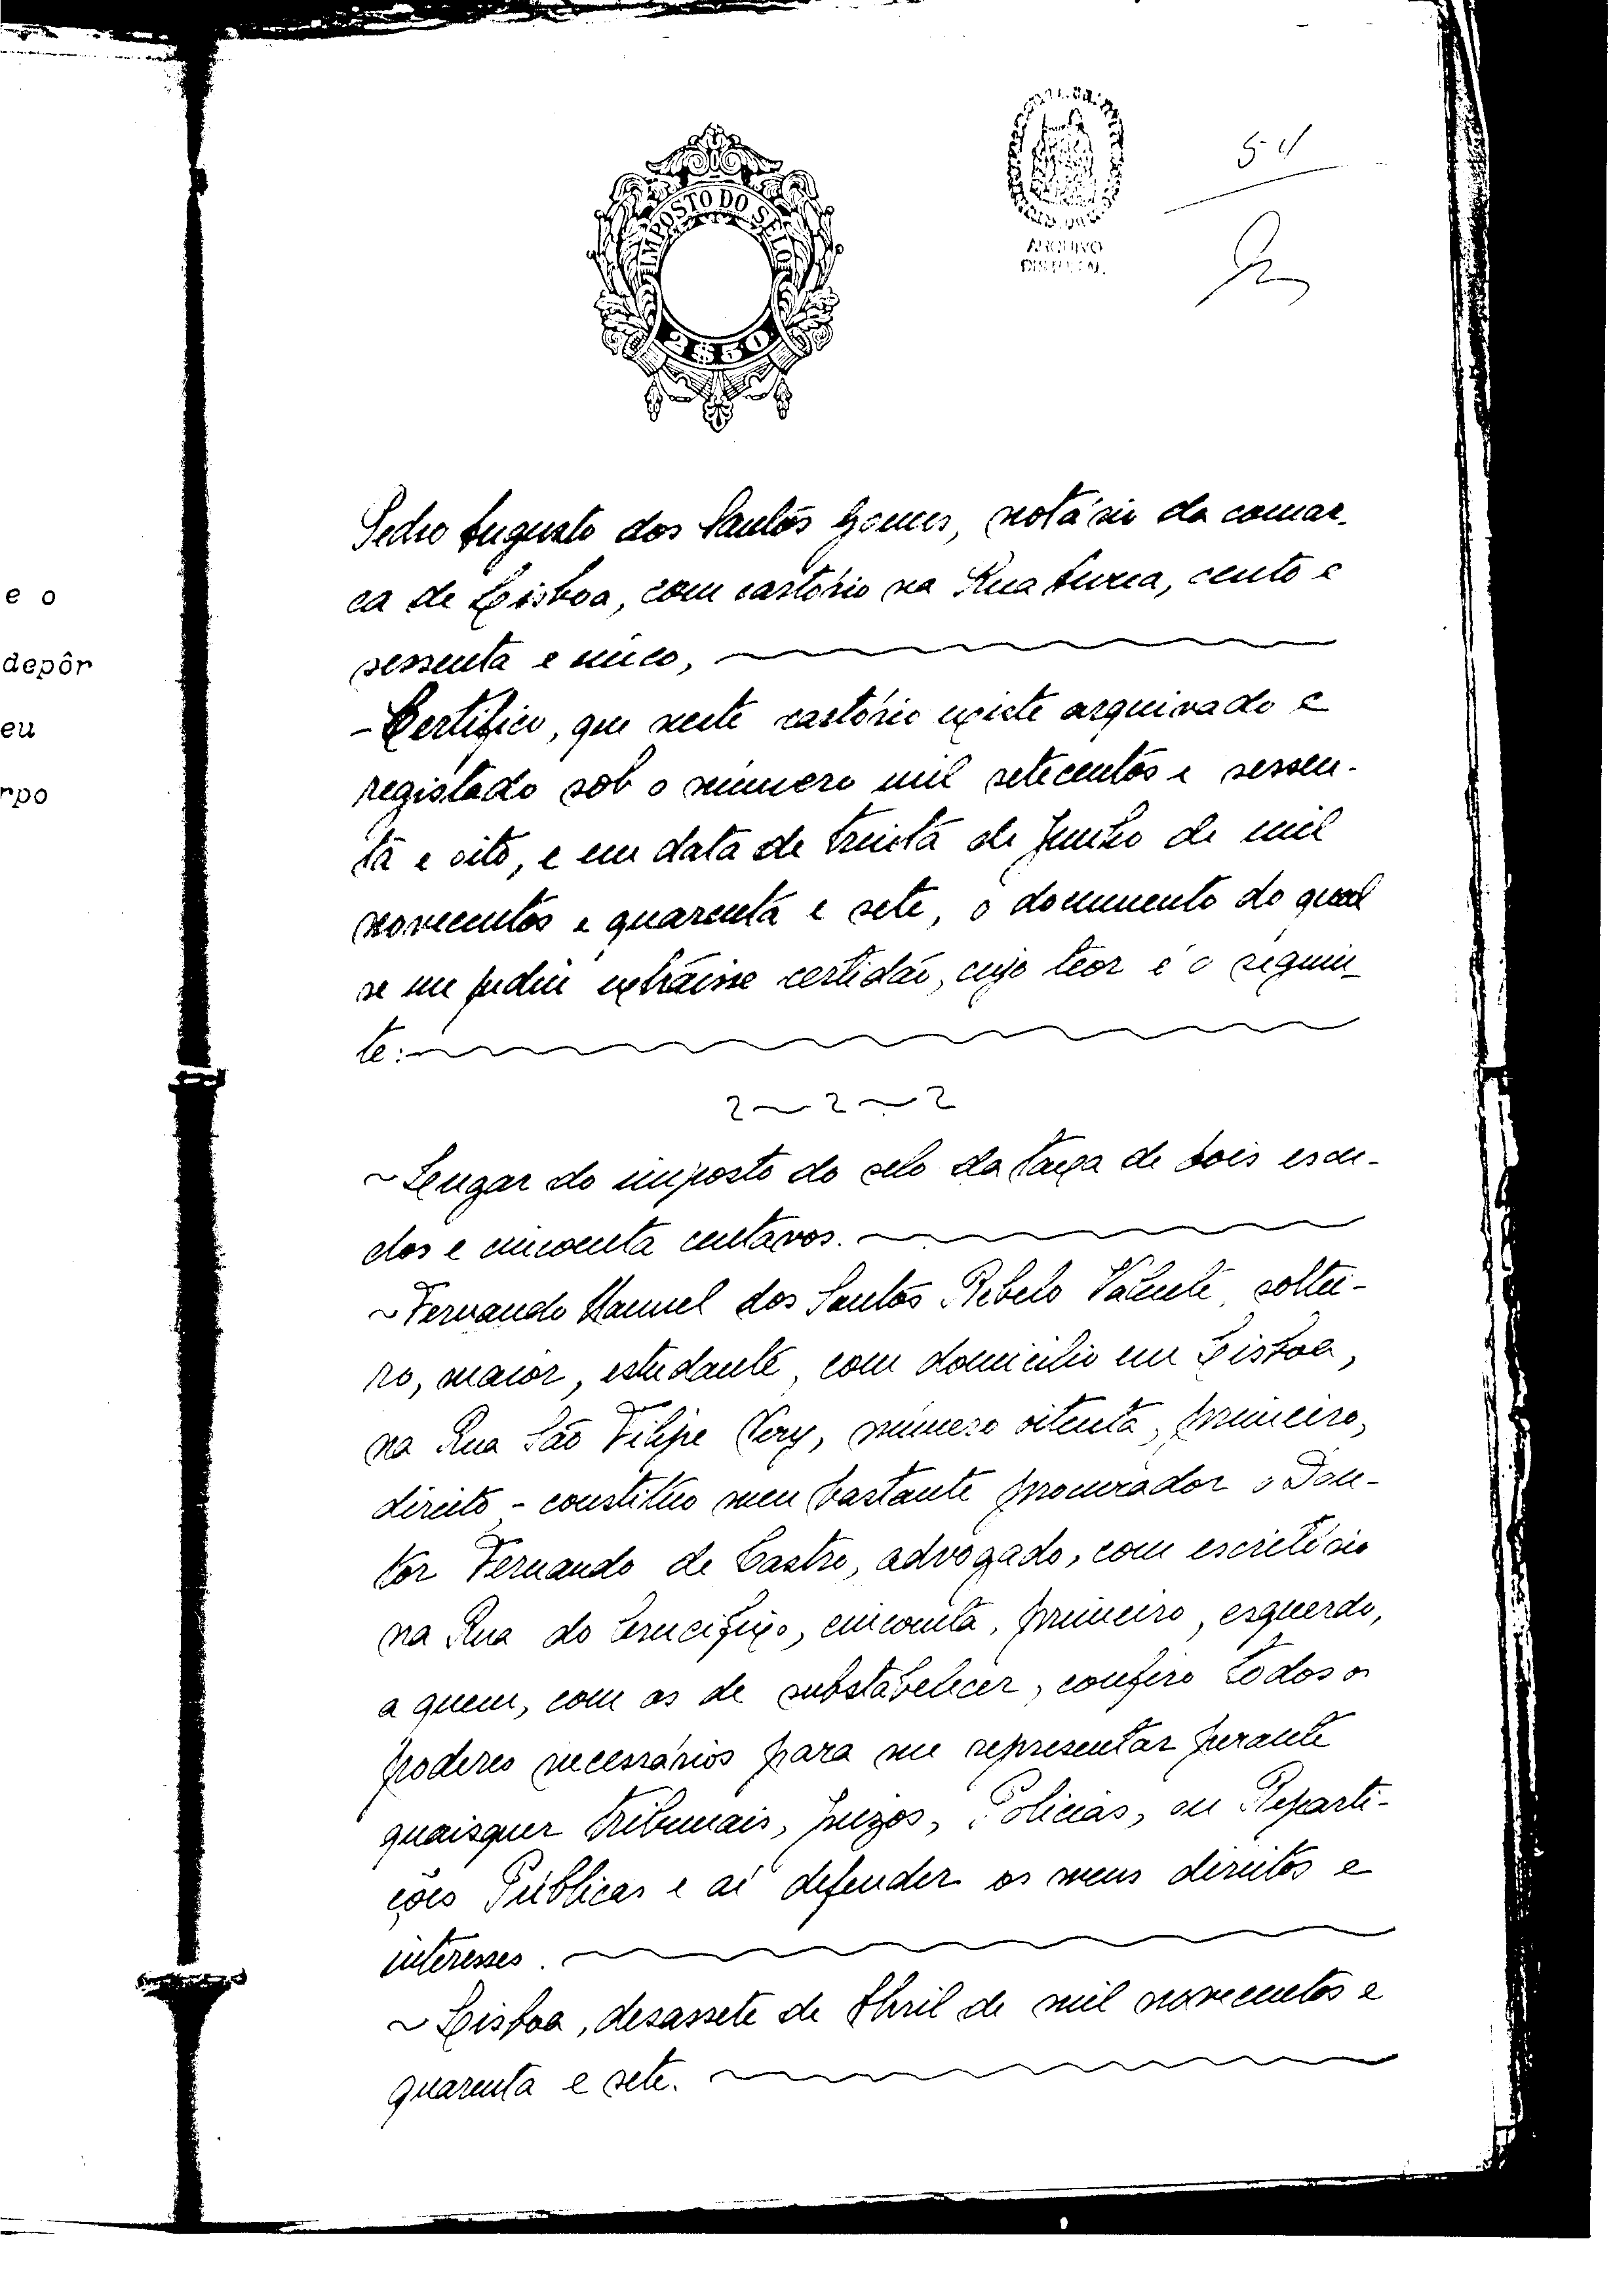 e o
depôr
eu
rpo
IMPOSTO DO SELO
2$50
ARQUIVO
DISTRITAL
54
Pedro Augusto dos Santos Gomes, notário da comar-
ca de Lisboa, com cartório na Rua Aurea, cento e
sessenta e cinco,
- Certifico, que neste cartório existe arquivado e
registado sob o número mil setecentos e sessen-
ta e oito, e em data de trinta de Junho de mil
novecentos e quarenta e sete, o documento do qual
se me pediu extraísse certidão, cujo teor é o seguin-
te:
~ Lugar do imposto do selo da taxa de dois escu-
dos e cincoenta centavos.
~ Fernando Manuel dos Santos Rebelo Valente, soltei-
ro, maior, estudante, com domicílio em Lisboa,
na Rua São Filipe Nery, número oitenta, primeiro,
direito - constituo meu bastante procurador o Dou-
tor Fernando de Castro, advogado, com escritório
na Rua do Crucifixo, cincoenta, primeiro, esquerdo,
a quem, com os de substabelecer, confiro todos os
poderes necessários para me representar perante
quaisquer Tribunais, Juizos, Policias, ou Reparti-
ções Públicas e aí defender os meus direitos e
interesses.
~ Lisboa, desassete de Abril de mil novecentos e
quarenta e sete.